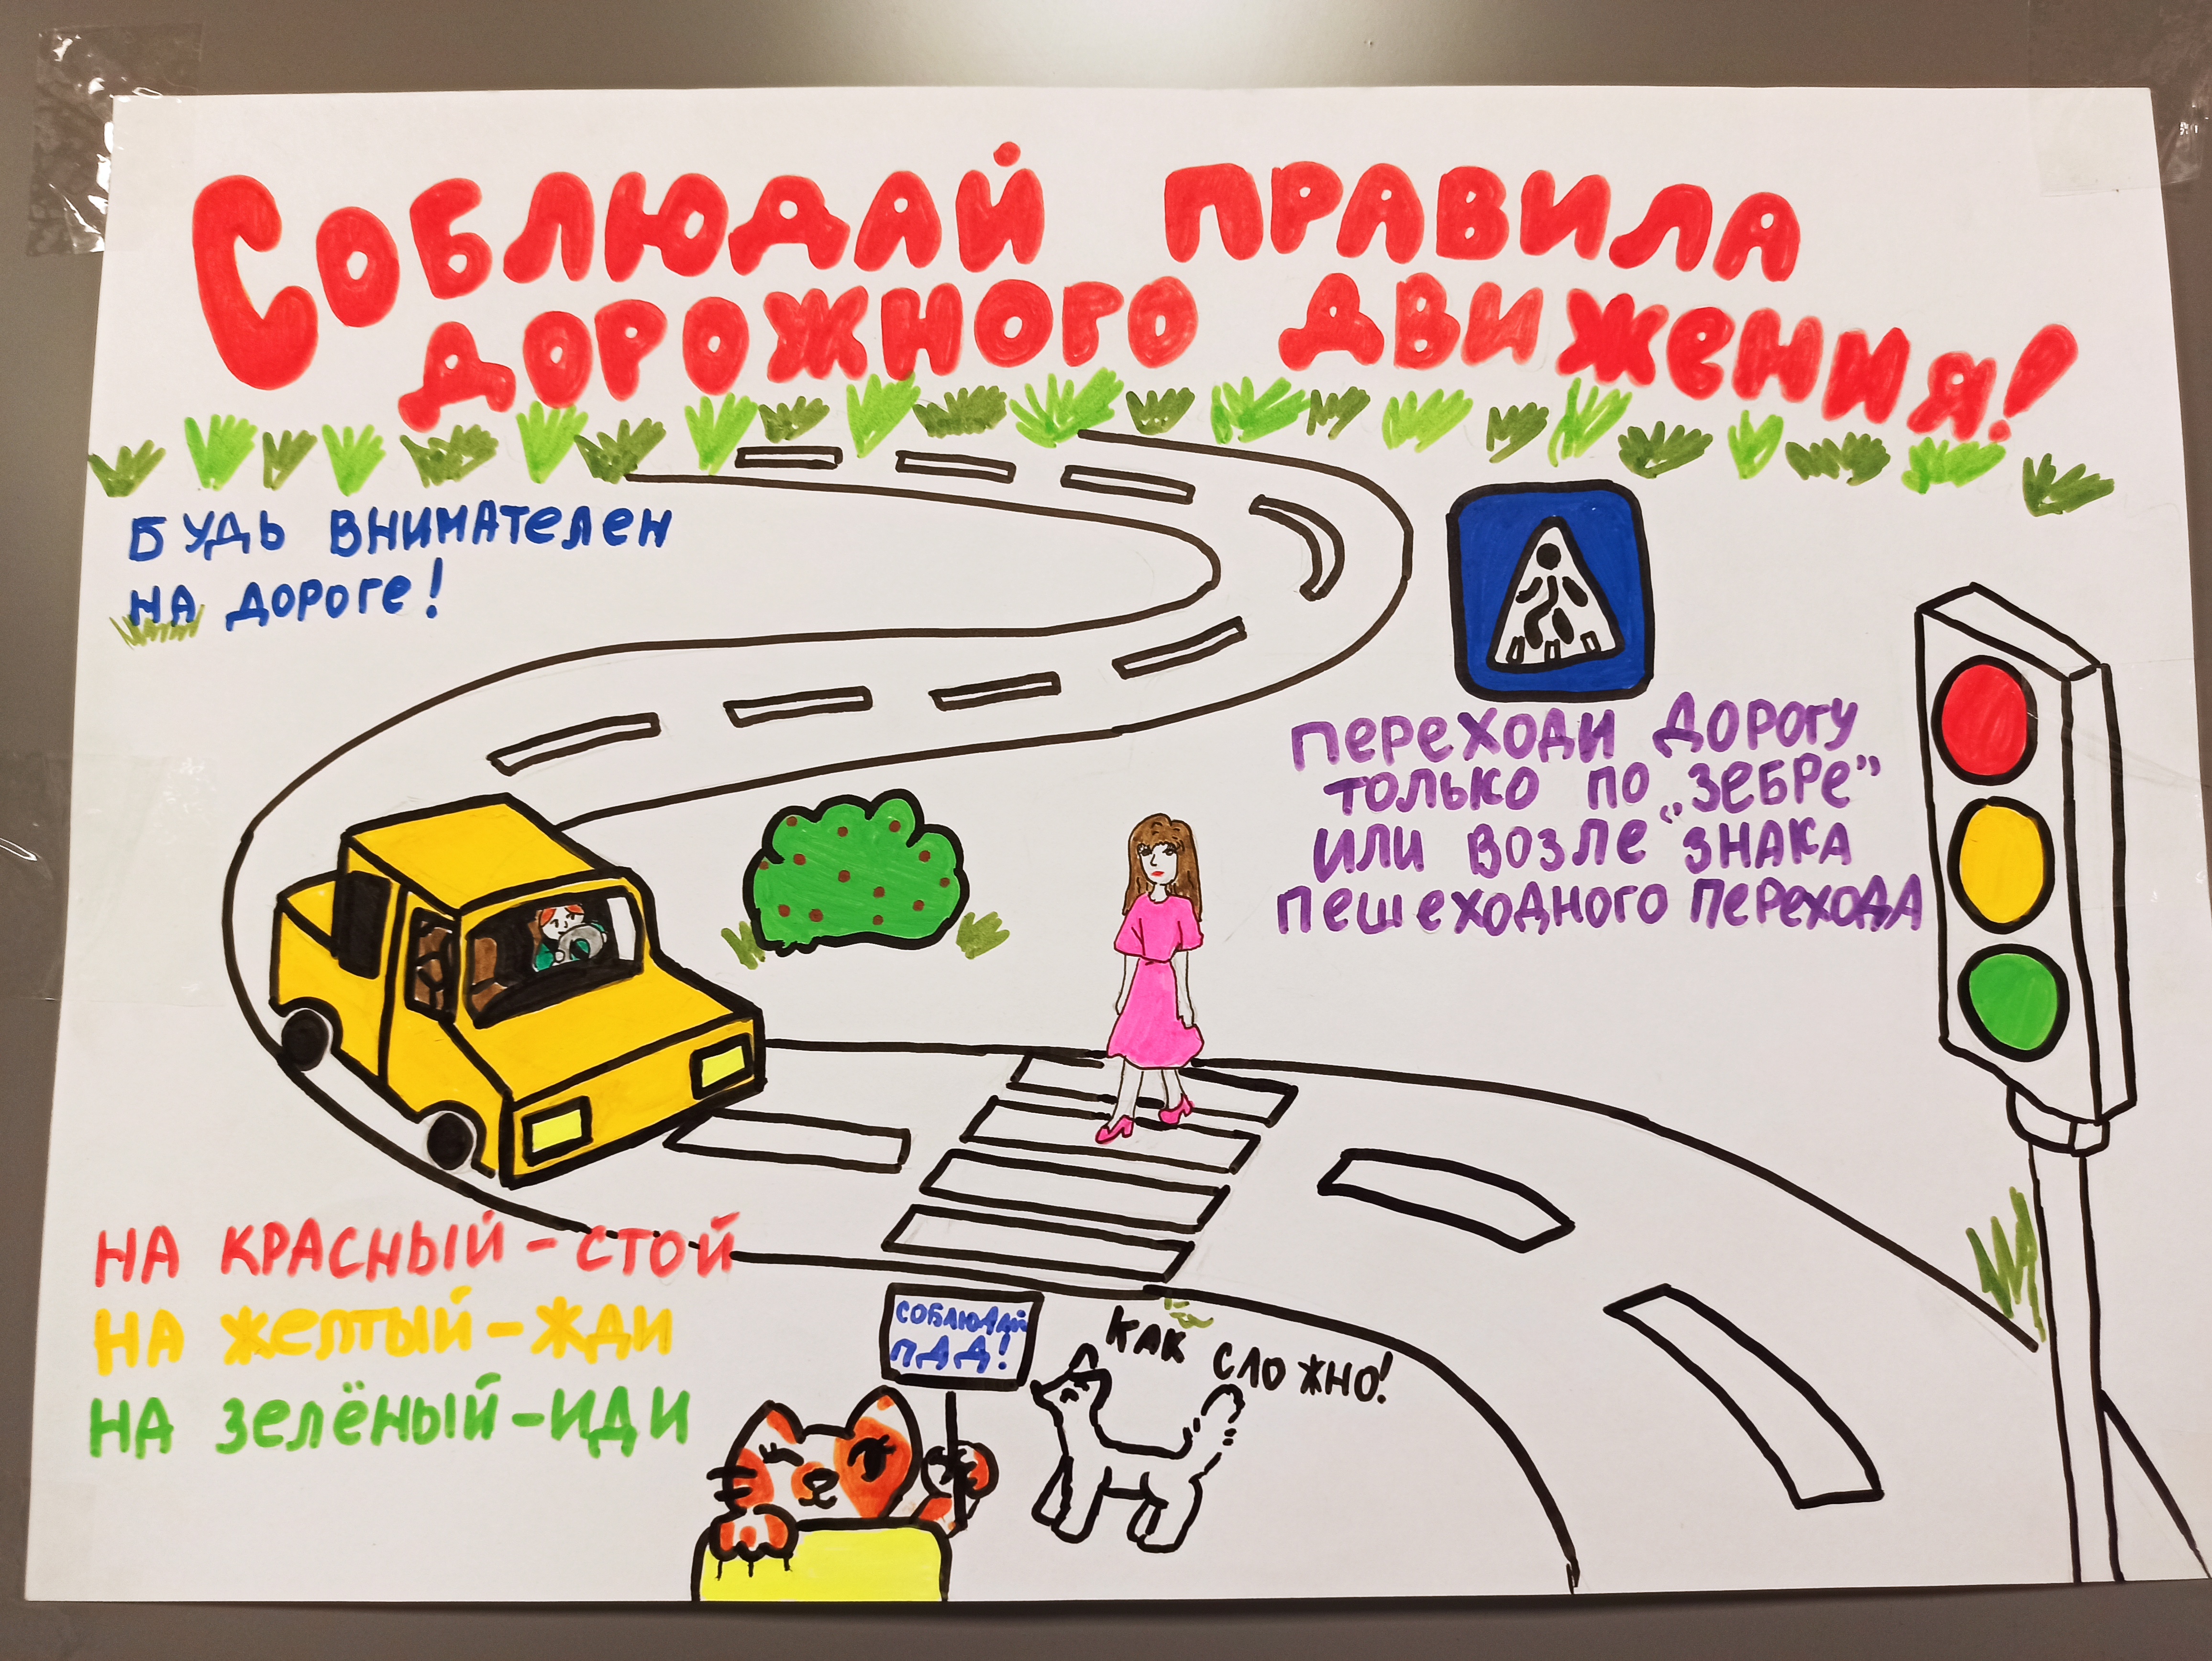 Соблюдай правила
дорожного движения!
Будь внимателен
на дороге!
Переходи дорогу
только по „зебре”
или возле "знака
пешеходного перехода
На красный - стой
На желтый - жди
На зелёный - иди
Соблюдай
ПДД!
Как сложно!